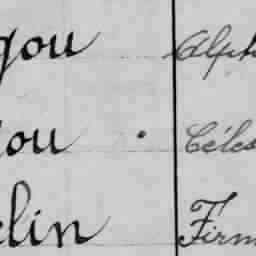 gou Alph
ou Céles
elin Firm